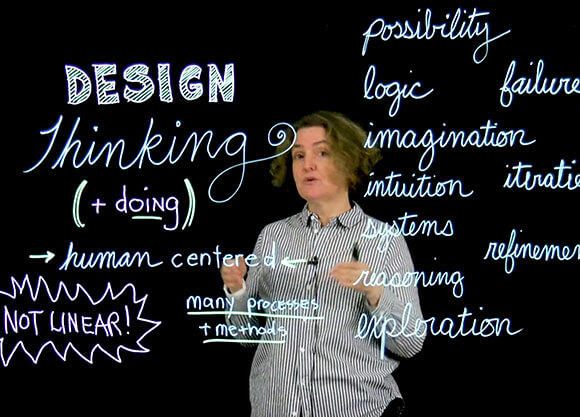 DESIGN
Thinking
(+ doing)
→ human centered ←
many processes
+ methods
NOT LINEAR!
possibility
logic
failure
imagination
intuition
iteratio
systems
refinemen
reasoning
exploration